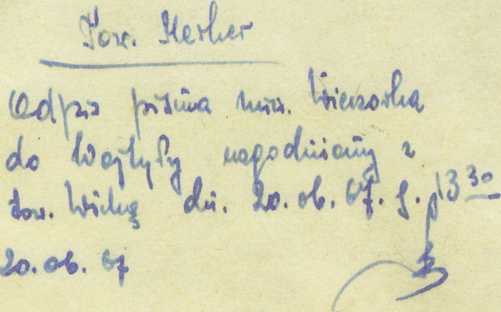 Tow. Merker
Odpis pisma min. Wieczorka
do Wojtyły uzgodniony z
tow. Wichą dn. 20.06.67. g. 13 30
20.06.67